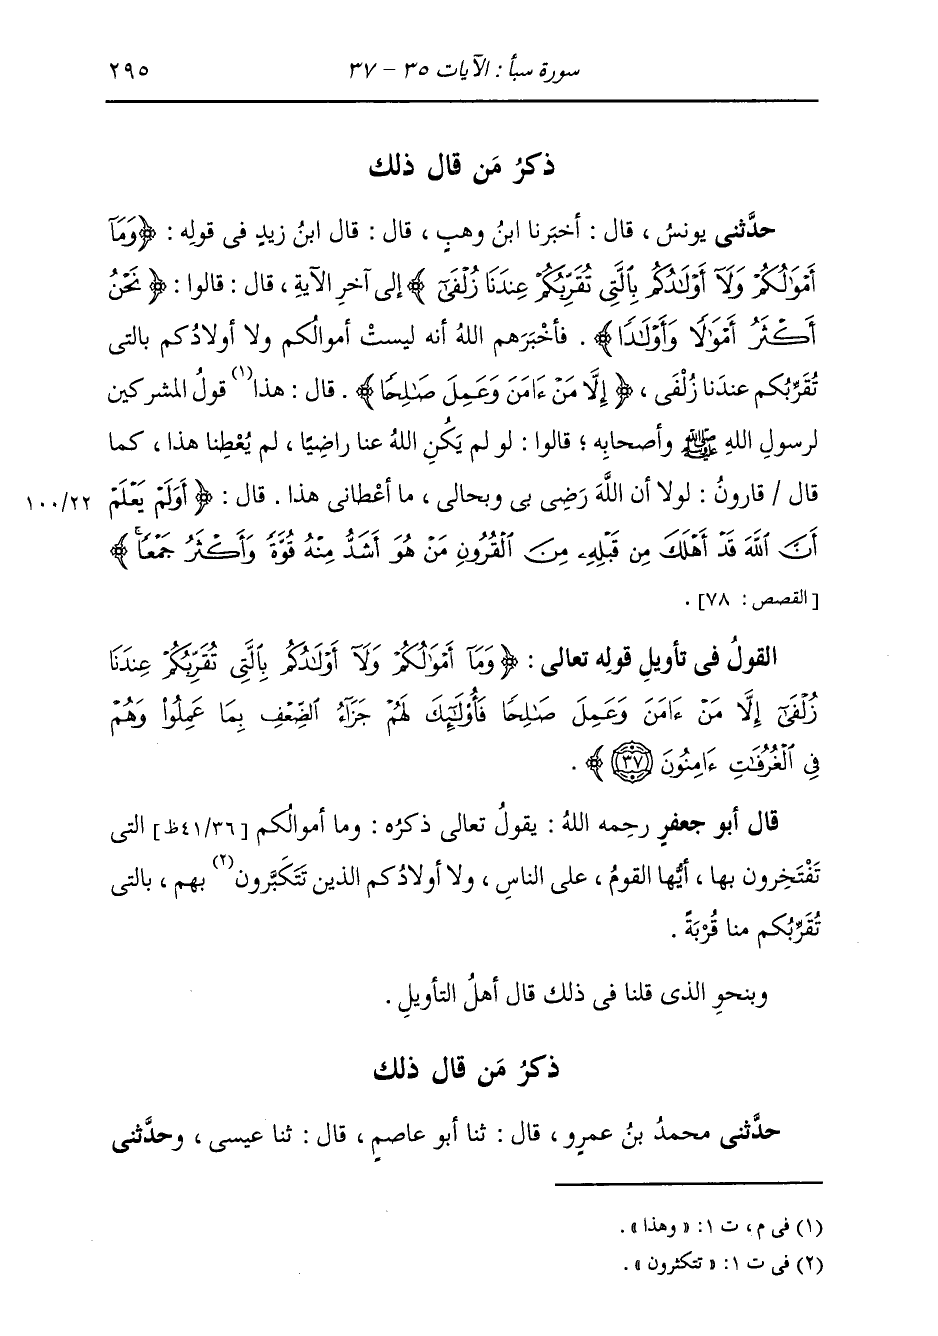 سورة سبأ : الآيات ٣٥ - ٣٧ ٢٩٥
ذكرُ مَن قال ذلك
حدَّثنى يونسُ ، قال : أخبَرنا ابنُ وهبٍ ، قال : قال ابنُ زيدٍ فى قولِه : ﴿ وَمَآ
أَمْوَٰلُكُمْ وَلَآ أَوْلَٰدُكُم بِٱلَّتِى تُقَرِّبُكُمْ عِندَنَا زُلْفَىٰٓ ﴾ إلى آخرِ الآيةِ ، قال : قالوا : ﴿ نَحْنُ
أَكْثَرُ أَمْوَٰلًا وَأَوْلَٰدًا ﴾ . فأخْبَرَهم اللهُ أنه ليستْ أموالُكم ولا أولادُكم بالتى
تُقَرِّبُكم عندَنا زُلْفَى ، ﴿ إِلَّا مَنْ ءَامَنَ وَعَمِلَ صَٰلِحًا ﴾ . قال : هذا(١) قولُ المشركين
لرسولِ اللهِ ﷺ وأصحابِه ؛ قالوا : لو لم يَكُنِ اللهُ عنا راضِيًا ، لم يُعْطِنا هذا ، كما
قال / قارونُ : لولا أن اللَّهَ رَضِى بى وبحالى ، ما أعْطانى هذا . قال : ﴿ أَوَلَمْ يَعْلَمْ ١٠٠/٢٢
أَنَّ ٱللَّهَ قَدْ أَهْلَكَ مِن قَبْلِهِۦ مِنَ ٱلْقُرُونِ مَنْ هُوَ أَشَدُّ مِنْهُ قُوَّةً وَأَكْثَرُ جَمْعًا ۚ ﴾
[ القصص : ٧٨] .
القولُ فى تأويلِ قولِه تعالى : ﴿ وَمَآ أَمْوَٰلُكُمْ وَلَآ أَوْلَٰدُكُم بِٱلَّتِى تُقَرِّبُكُمْ عِندَنَا
زُلْفَىٰٓ إِلَّا مَنْ ءَامَنَ وَعَمِلَ صَٰلِحًا فَأُو۟لَٰٓئِكَ لَهُمْ جَزَآءُ ٱلضِّعْفِ بِمَا عَمِلُوا۟ وَهُمْ
فِى ٱلْغُرُفَٰتِ ءَامِنُونَ ٣٧ ﴾ .
قال أبو جعفرٍ رحِمه اللهُ : يقولُ تعالى ذكرُه : وما أموالُكم [٤١/٣٦ظ] التى
تَفْتَخِرون بها ، أيُّها القومُ ، على الناسِ ، ولا أولادُكم الذين تَتَكَبَّرون(٢) بهم ، بالتى
تُقَرِّبُكم منا قُرْبَةً .
وبنحوِ الذى قلنا فى ذلك قال أهلُ التأويلِ .
ذكرُ مَن قال ذلك
حدَّثنى محمدُ بنُ عمرٍو ، قال : ثنا أبو عاصمٍ ، قال : ثنا عيسى ، وحدَّثنى
(١) فى م ، ت ١ : « وهذا » .
(٢) فى ت ١ : « تتكثرون » .